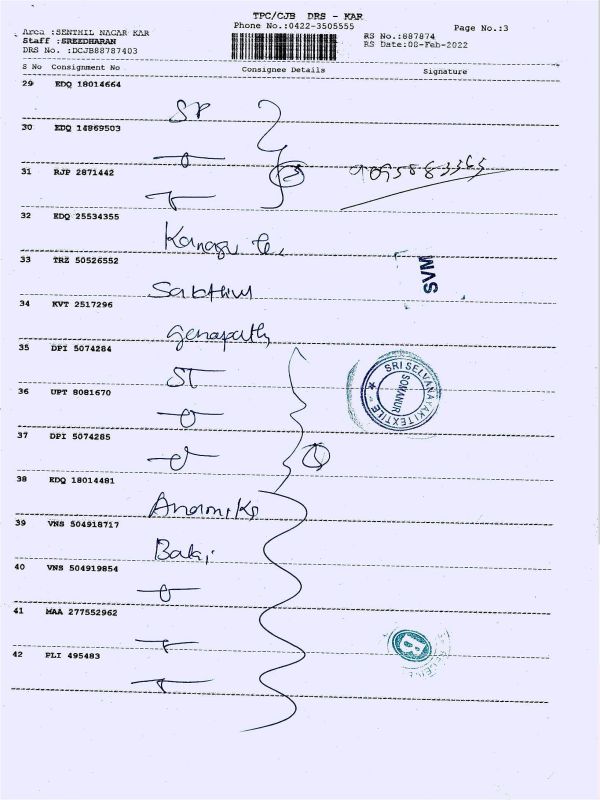 TPC/CJB DRS - KAR
Phone No.:0422-3505555
Page No.:3
Area :SENTHIL NAGAR KAR
Staff :SREEDHARAN
DRS No. :DCJB88787403
RS No.:887874
RS Date:08-Feb-2022
S No Consignment No Consignee Details Signature
29 EDQ 18014664
SP
30 EDQ 14869503
31 RJP 2871442
3
32 EDQ 25534355
33 TRZ 50526552
SVM
34 KVT 2517296
35 DPI 5074284
ST
SRI SELVANAYAKI TEXTILE
SOMANUR
36 UPT 8081670
37 DPI 5074285
38 EDQ 18014481
Anamika
39 VNS 504918717
Balaji
40 VNS 504919854
41 MAA 277552962
42 PLI 495483